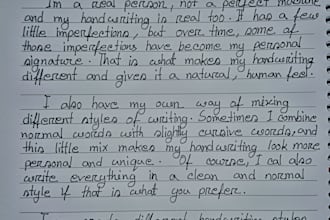 Im a real person, not a perfect machine
and my handwriting is real too. It has a few
little imperfections, but over time, some of
those imperfections have become my personal
signature. That is what makes my handwriting
different and gives it a natural, human feel.
I also have my own way of mixing
different styles of writing. Sometimes I combine
normal words with slightly cursive words, and
this little mix makes my handwriting look more
personal and unique. Of course, I cal also
write everything in a clean and normal
style if that is what you prefer.